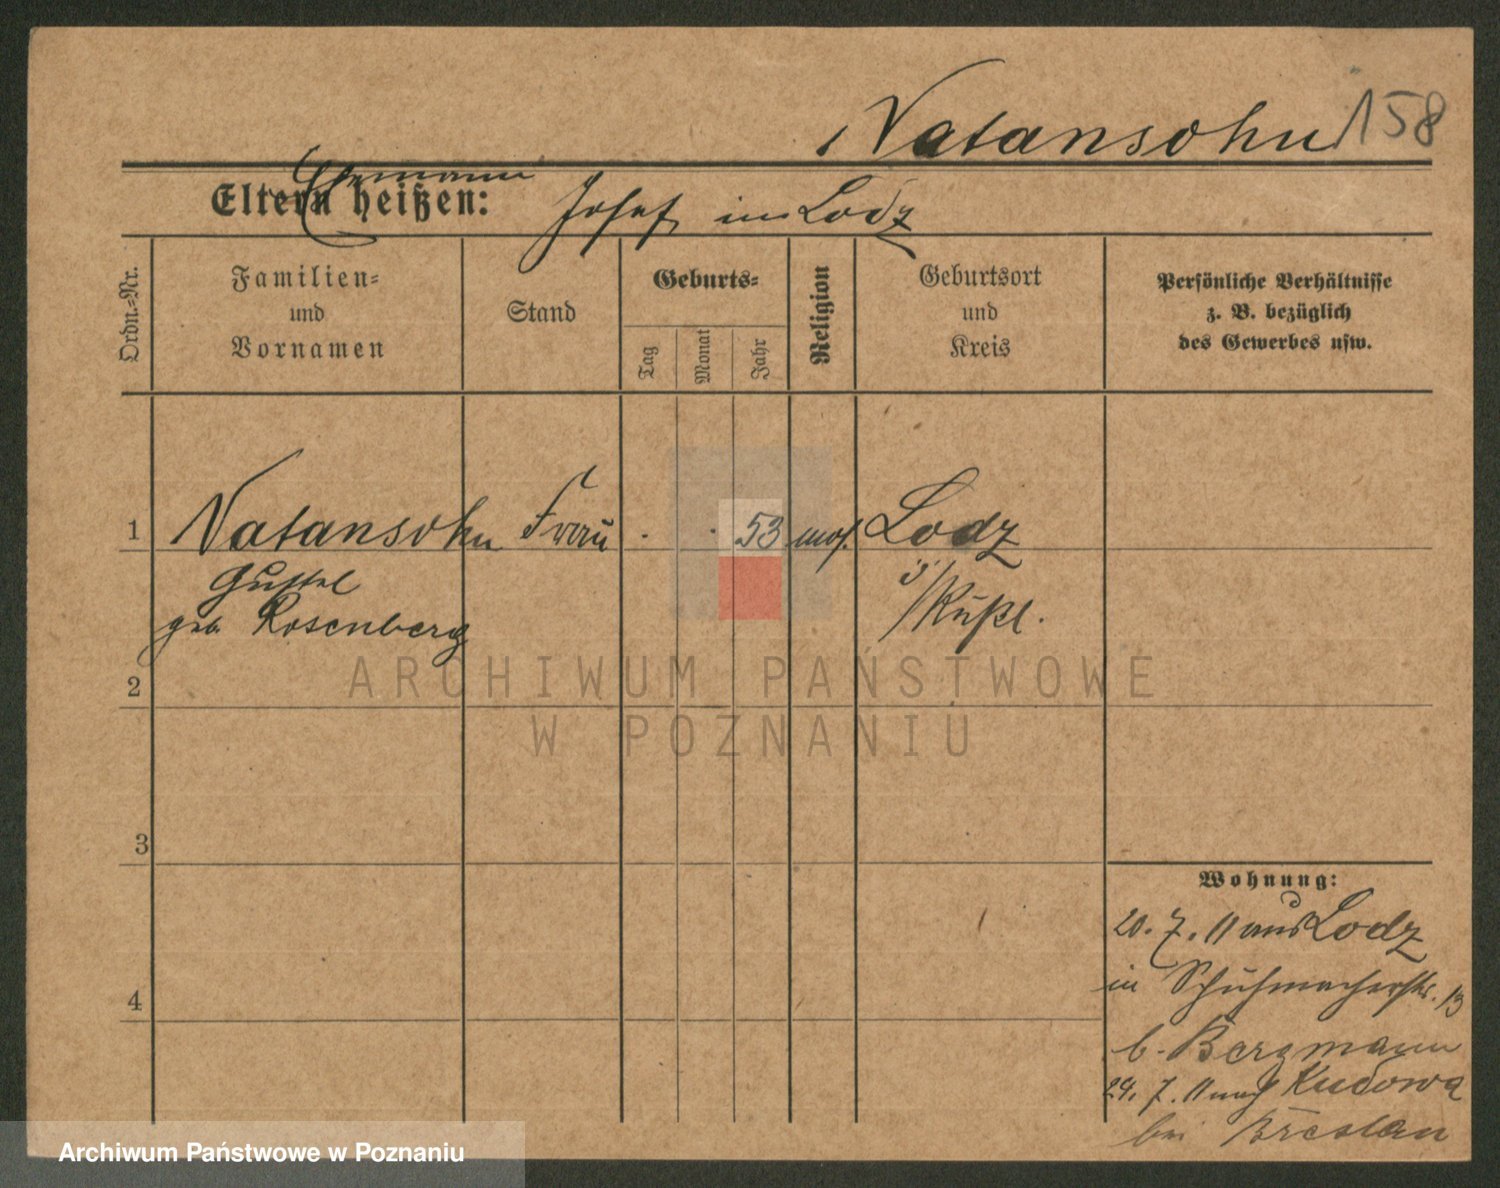 Natansohn 158
Ehemann
Eltern heißen: Josef in Lodz
Ordn.=Nr.
Familien=
und
Vornamen
Stand
Geburts=
Tag
Monat
Jahr
Religion
Geburtsort
und
Kreis
Persönliche Verhältnisse
z. B. bezüglich
des Gewerbes usw.
1 Natansohn Frau . . 53 mos. Lodz
Gustel
i/Rußl.
geb. Rosenberg
2
3
4
Wohnung:
20. 7. 11 aus Lodz
in Schuhmacherstr. 13
b. Bergmann
24. 7. 11 nach Kudowa
bei Breslau
ARCHIWUM PAŃSTWOWE
W POZNANIU
Archiwum Państwowe w Poznaniu